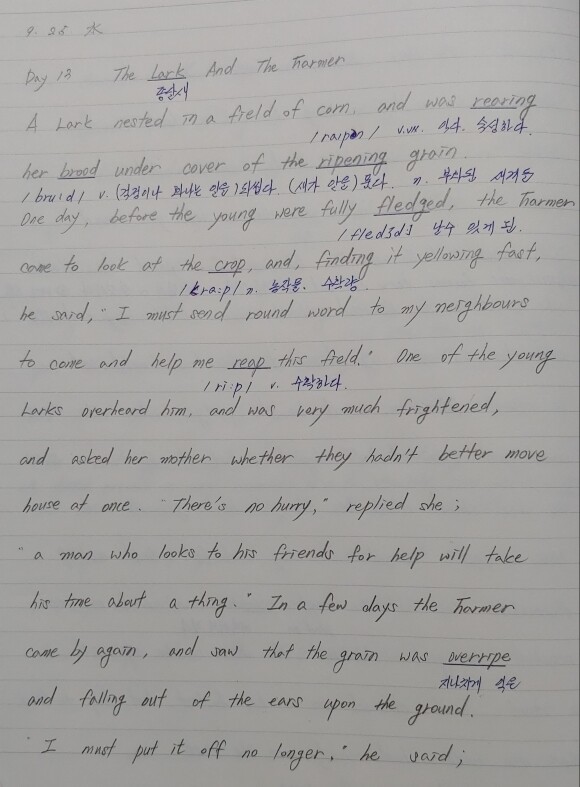 9. 25 水
Day 13 The Lark And The Farmer
종달새
A Lark nested in a field of corn, and was rearing
/raipən/ v.vn. 익다. 숙성하다.
her brood under cover of the ripening grain.
/bru:d/ v. (걱정이나 화나는 일을) 되씹다. (새가 알을) 품다. n.
One day, before the young were fully fledged, the Farmer
/fledʒd/ 날수 있게 된.
came to look at the crop, and, finding it yellowing fast,
/kra:p/ n. 농작물. 수확량
he said, "I must send round word to my neighbours
to come and help me reap this field." One of the young
/ri:p/ v. 수확하다.
Larks overheard him, and was very much frightened,
and asked her mother whether they hadn't better move
house at once. "There's no hurry," replied she;
"a man who looks to his friends for help will take
his time about a thing." In a few days the Farmer
came by again, and saw that the grain was overripe
지나치게 익은
and falling out of the ears upon the ground.
"I must put it off no longer," he said;